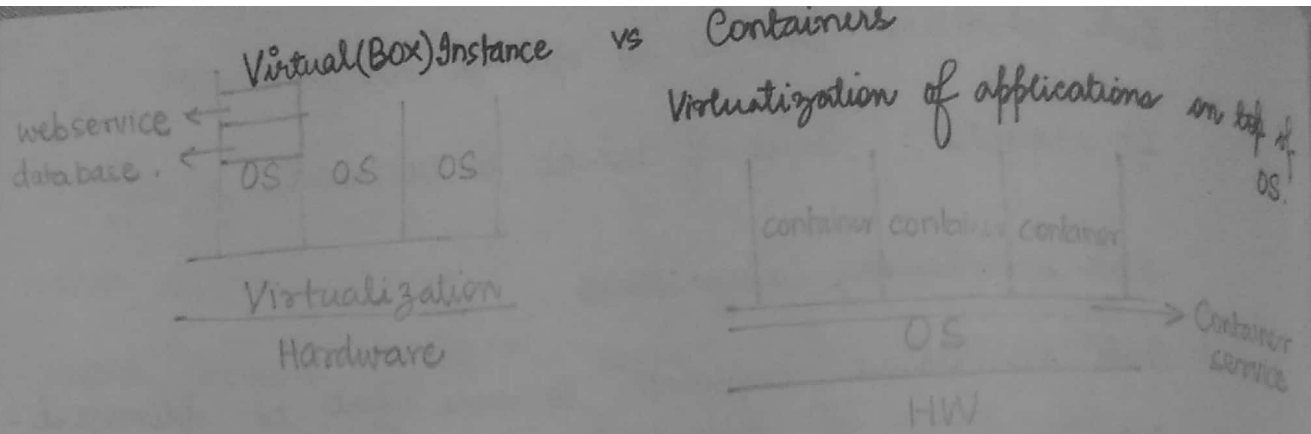 Virtual(Box)Instance vs Containers
Virtuatization of applications on top of
OS.
webservice
database.
OS OS OS
Virtualization
Hardware
container container container
Container
service
OS
HW